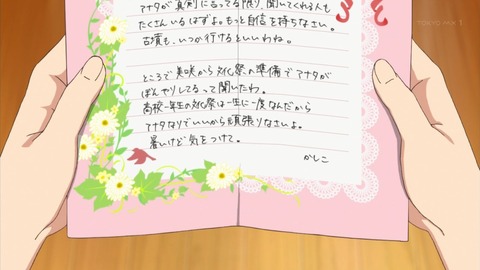 TOKYO MX 1
アナタが真剣に占ってる限り、聞いてくれる人も
たくさんいるはずよ。もっと自信を持ちなさい。
古墳も、いつか行けるといいわね。
ところで美咲から文化祭の準備でアナタが
ぼんやりしてるって聞いたわ。
高校一年生の文化祭は一生に一度なんだから
アナタなりでいいから頑張りなさいよ。
暑いけど気をつけて。
かしこ